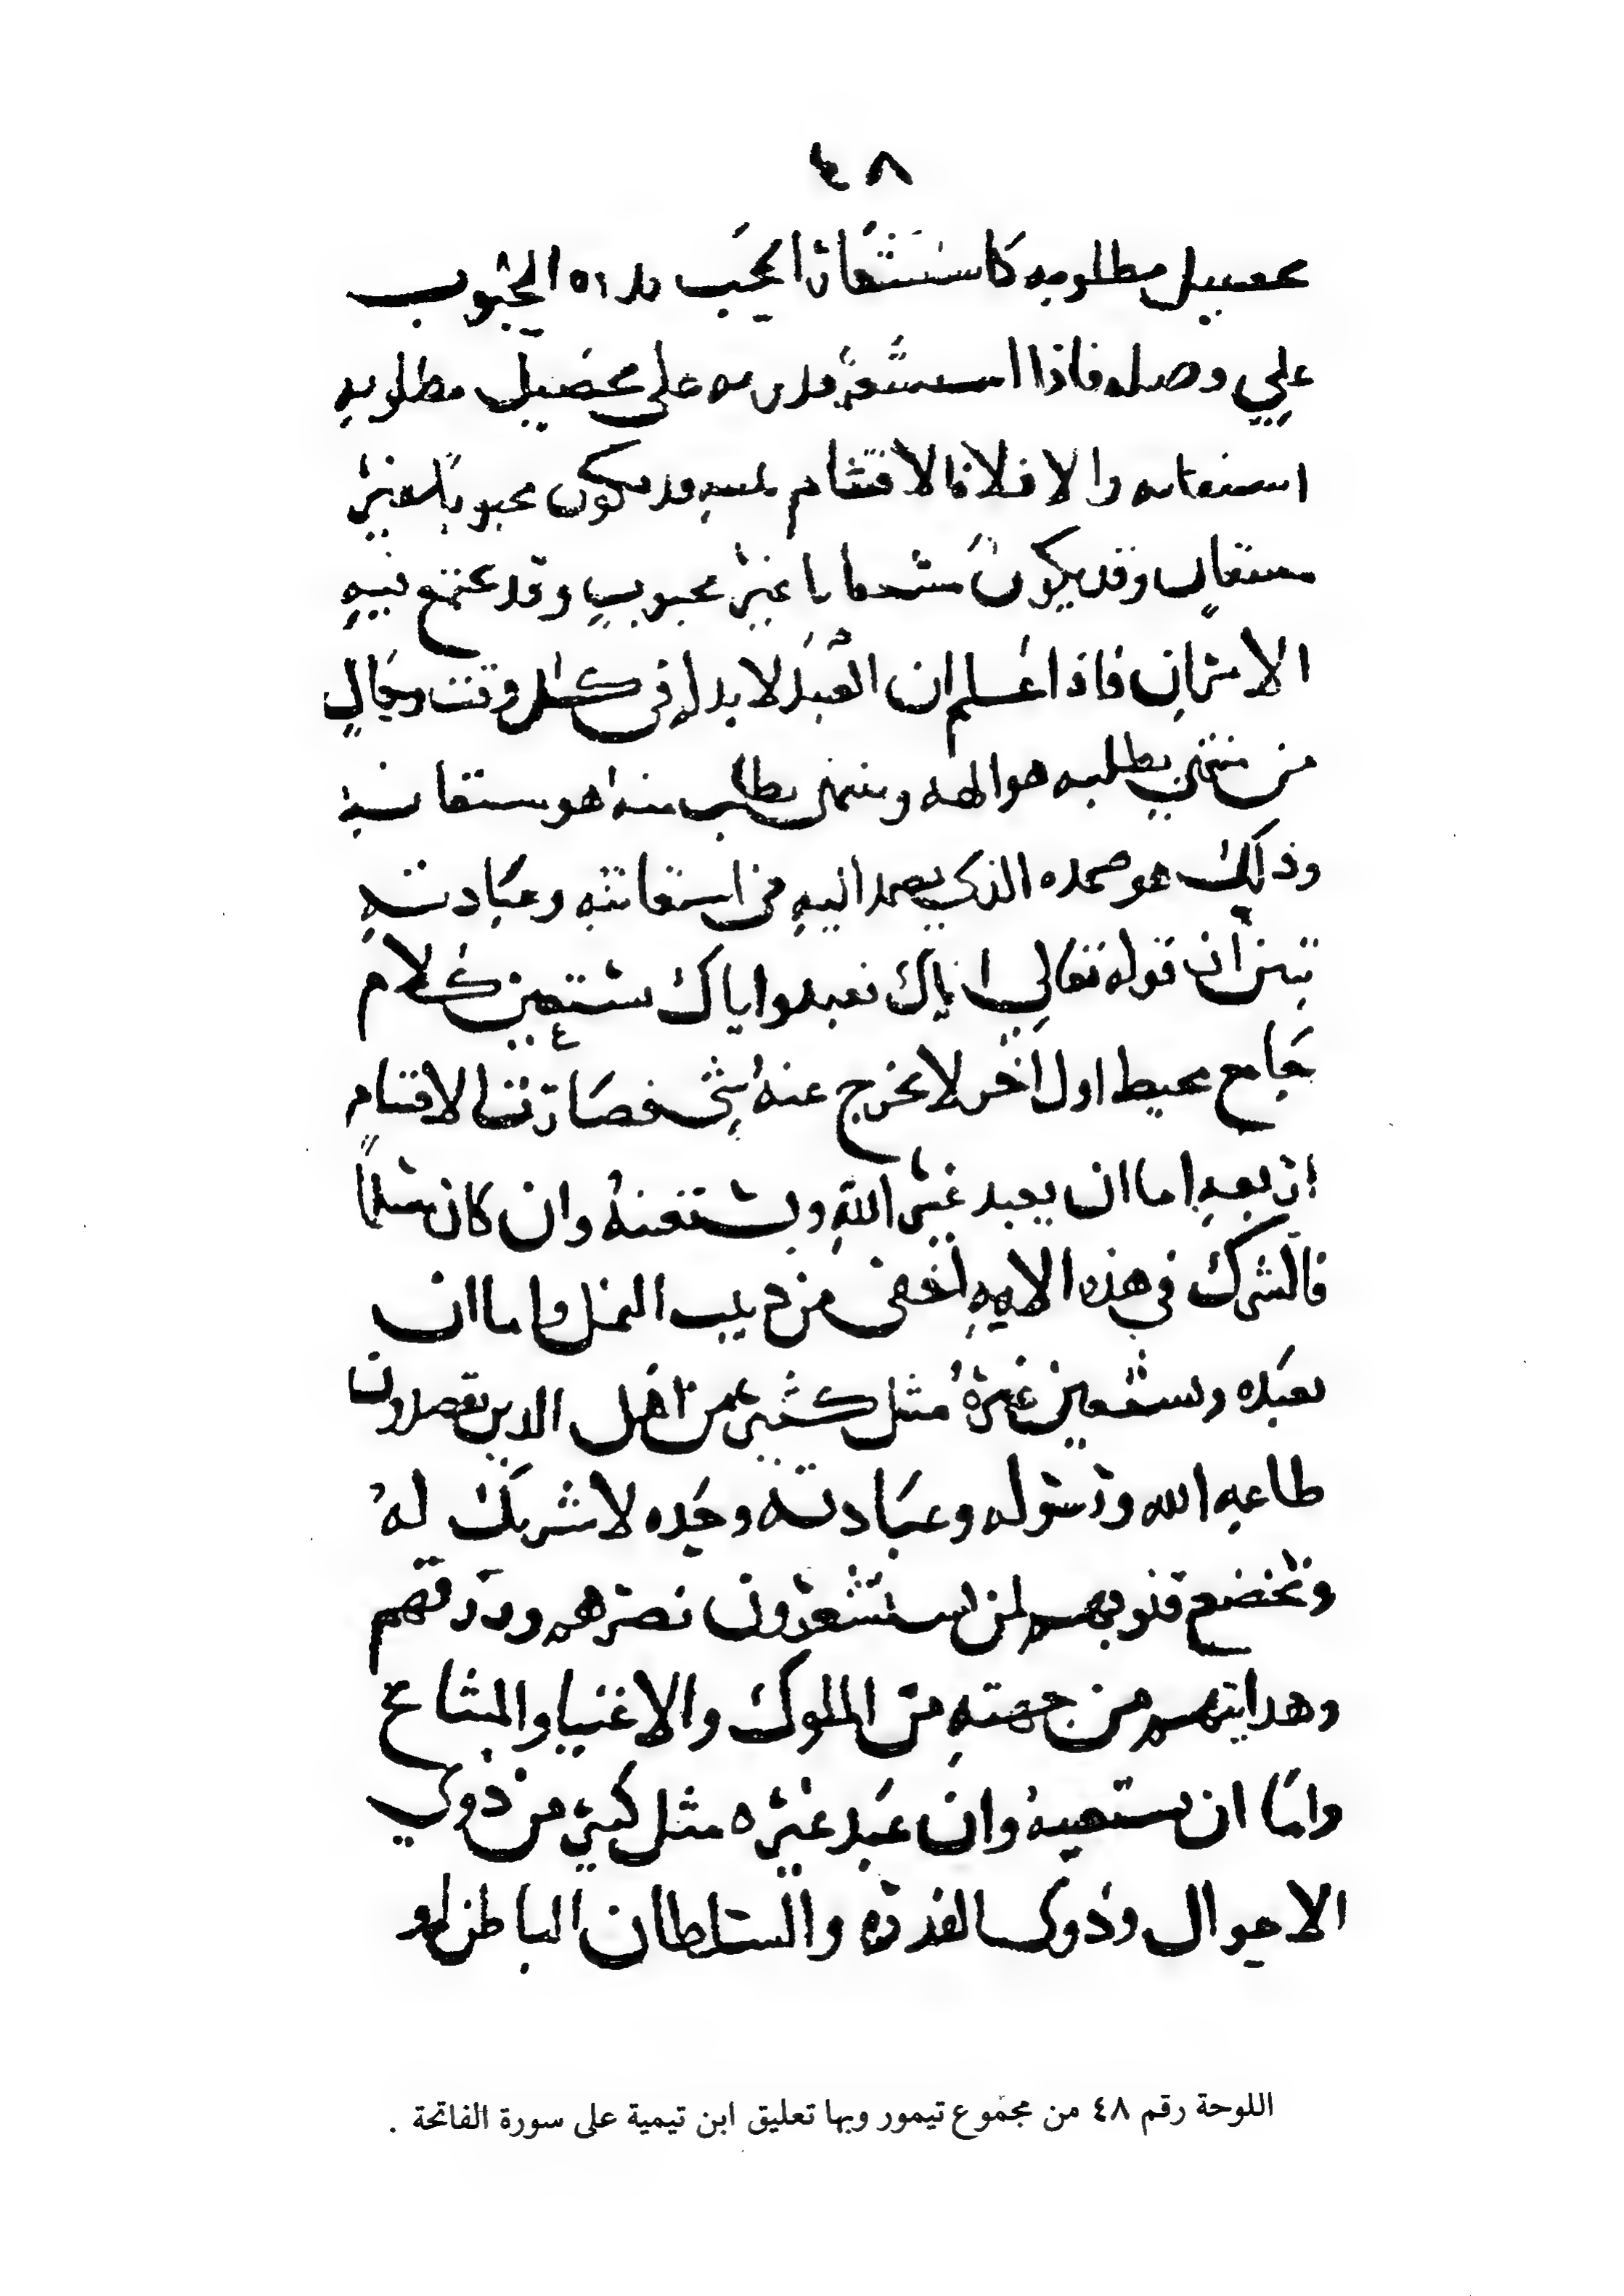 ٤٨
تحصيل مطلوبه كاستشعار المحب المحبوب
علي وصله فاذا استشعر قدرته على تحصيل مطلوبه
استعانه والا فلا فالاقسام قد يكون محبوبا غير
مستعان وقد يكون مستعانا غير محبوب وقد يجتمع فيه
الامران فاذا علم ان العبد لا بد له في كل وقت وحال
من منتهى يطلبه هو الهه ومنتهى يطلب منه هو مستعانه
وذلك هو صمده الذي يصمد اليه في استعانته وعبادته
تبين ان قوله تعالي اياك نعبد واياك نستعين كلام
جامع محيط اول اخر لا يخرج عنه شي فصارت الاقسام
اربعه اما ان يعبد غير الله ويستعنه وان كان مسلما
فالشرك في هذه الامه اخفى من دبيب النمل واما ان
يعبده ويستعين غيره مثل كثير من اهل الدين يقصدون
طاعه الله ورسوله وعبادته وحده لا شريك له
وتخضع قلوبهم لمن يستشعرون نصرهم ورزقهم
وهدايتهم من جهته من الملوك والاغنيا والمشايخ
واما ان يستعينه وان عبد غيره مثل كثير من ذوي
الاحوال وذوي القدره والسلطان الباطن او
اللوحة رقم ٤٨ من مجموع تيمور وبها تعليق ابن تيمية على سورة الفاتحة .